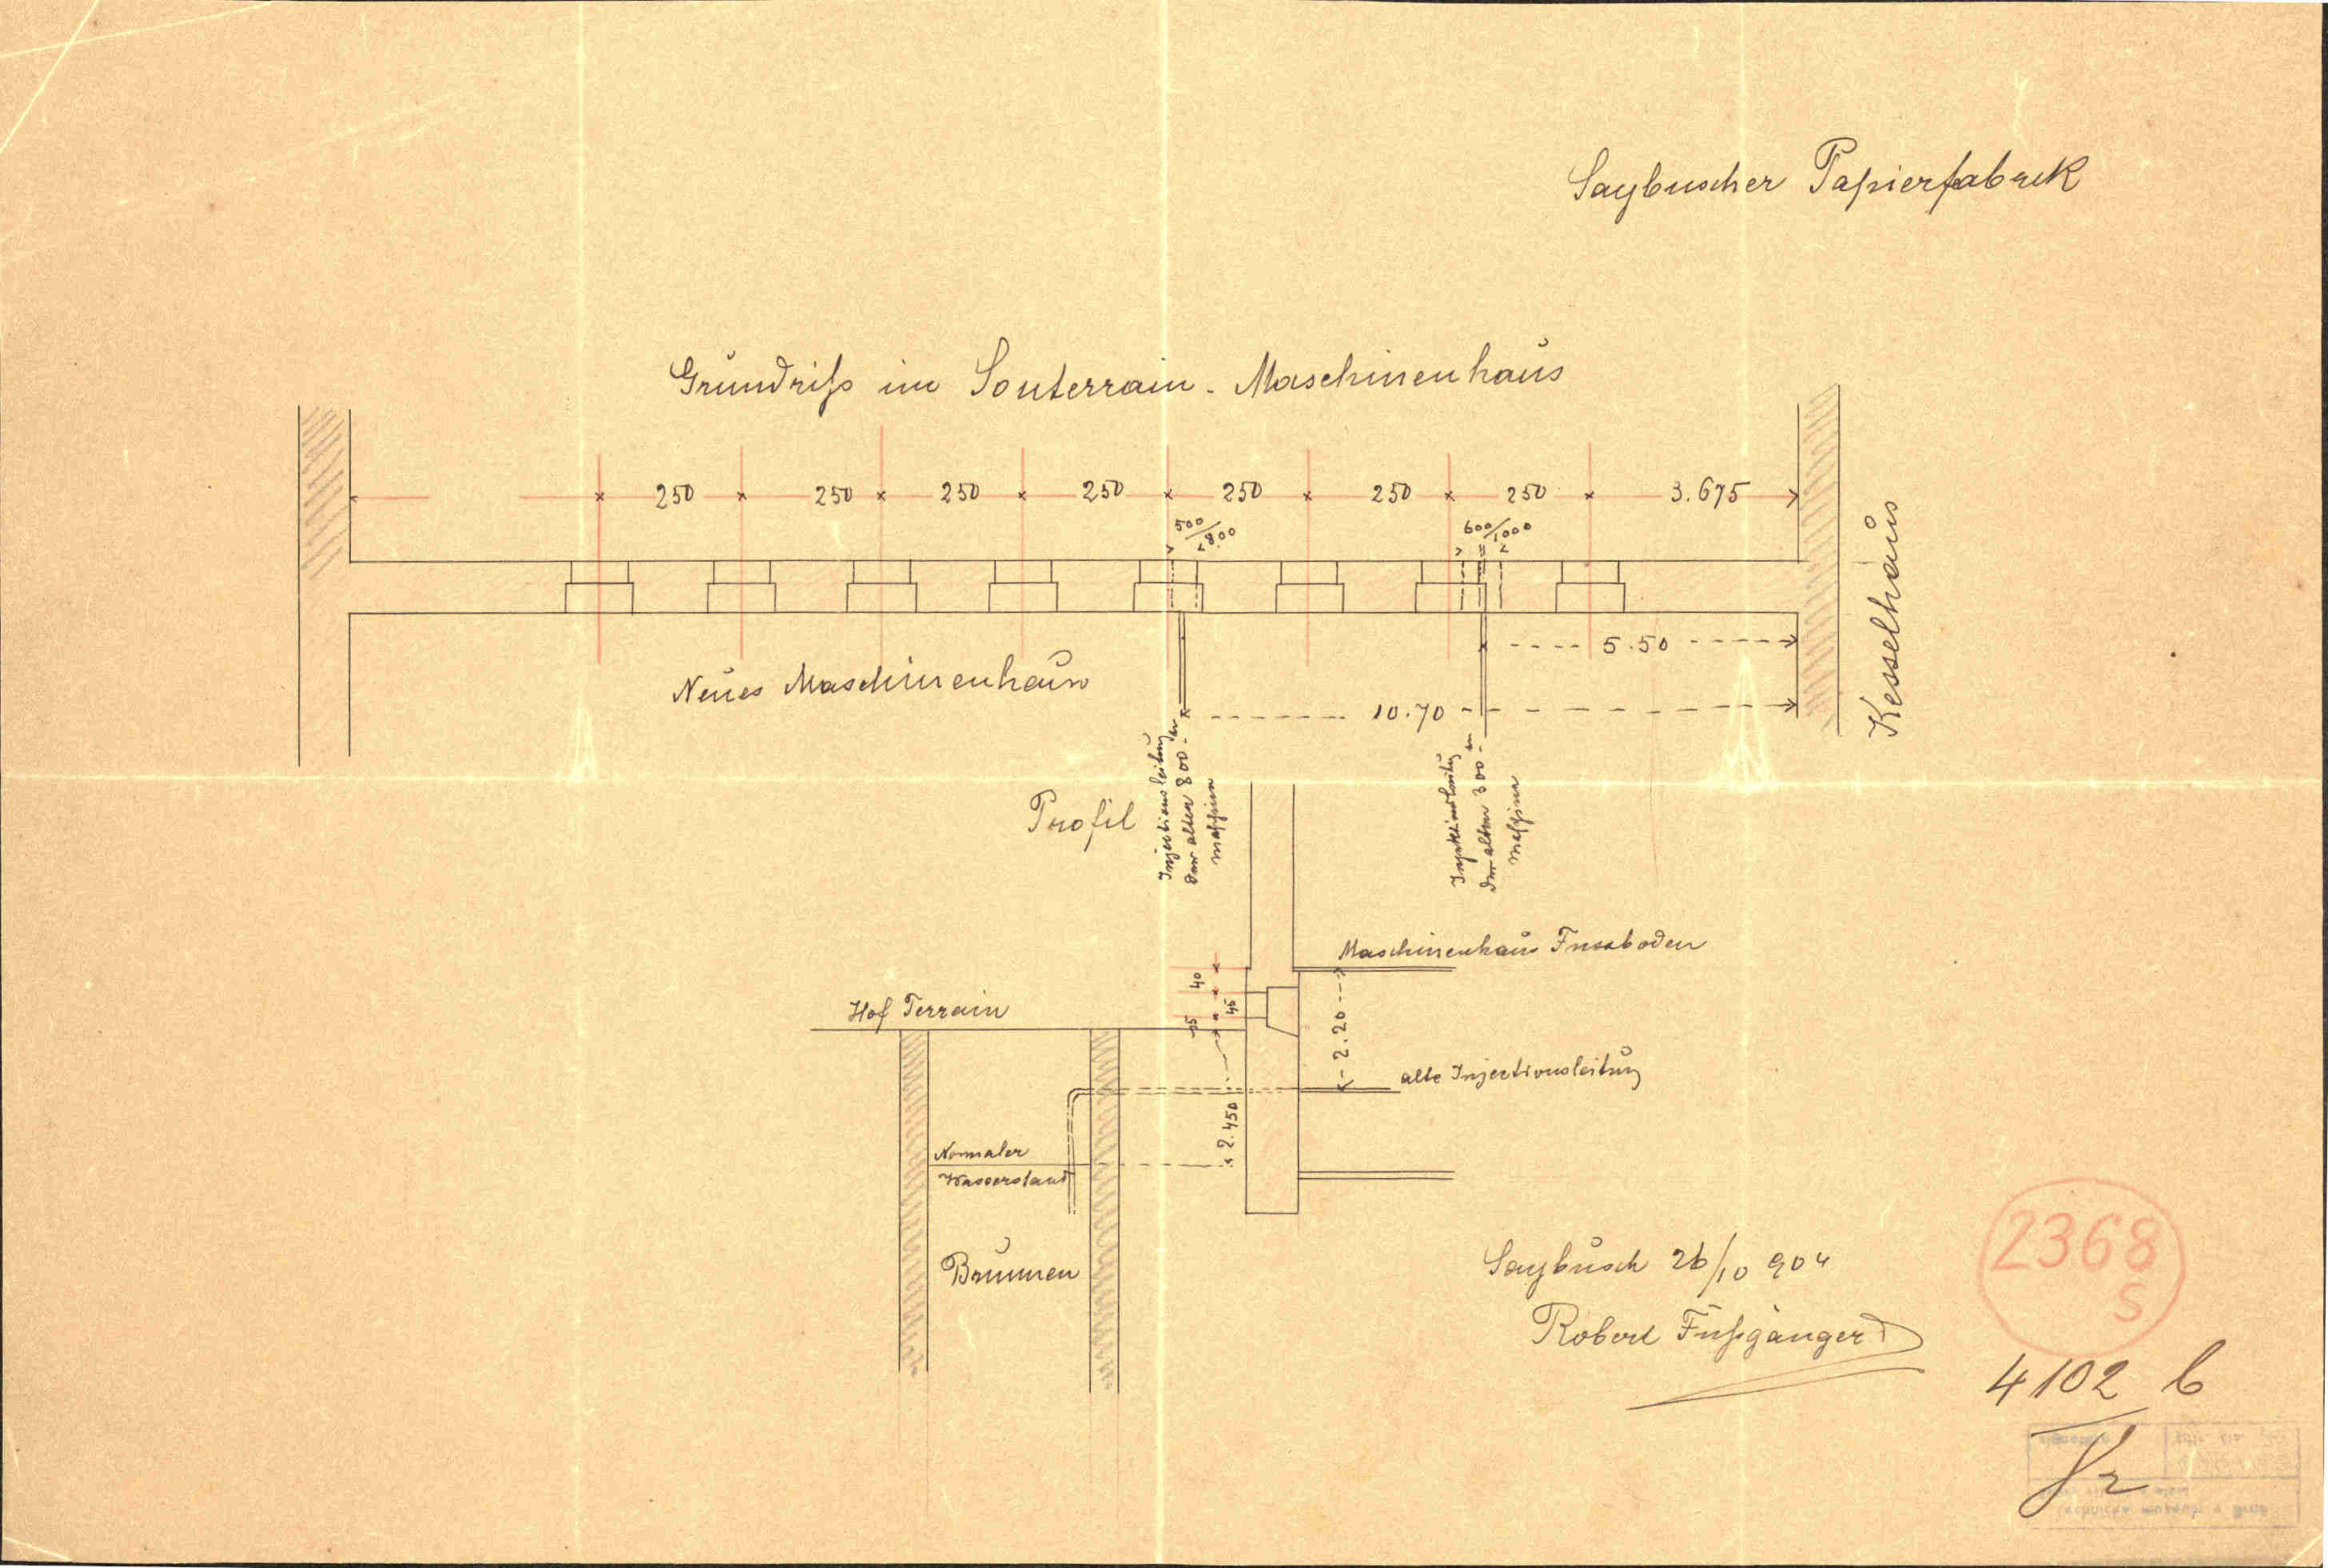 Saybuscher Papierfabrik
Grundriß im Souterrain - Maschinenhaus
250 250 250 250 250 250 250 3.675
500/800 600/1000
5.50
Neues Maschinenhaus
10.70
Kesselhaus
Injectionsleitung
der alten 800-er
Maschine
Injektionsleitung
der alten 300-er
Maschine
Profil
Maschinenhaus Fussboden
40
45
15
Hof Terrain
2.20
alte Injectionsleitung
2.450
Normaler
Wasserstand
Brunnen
Saybusch 26/10 904
Robert Fußgänger
2368
S
4102 b